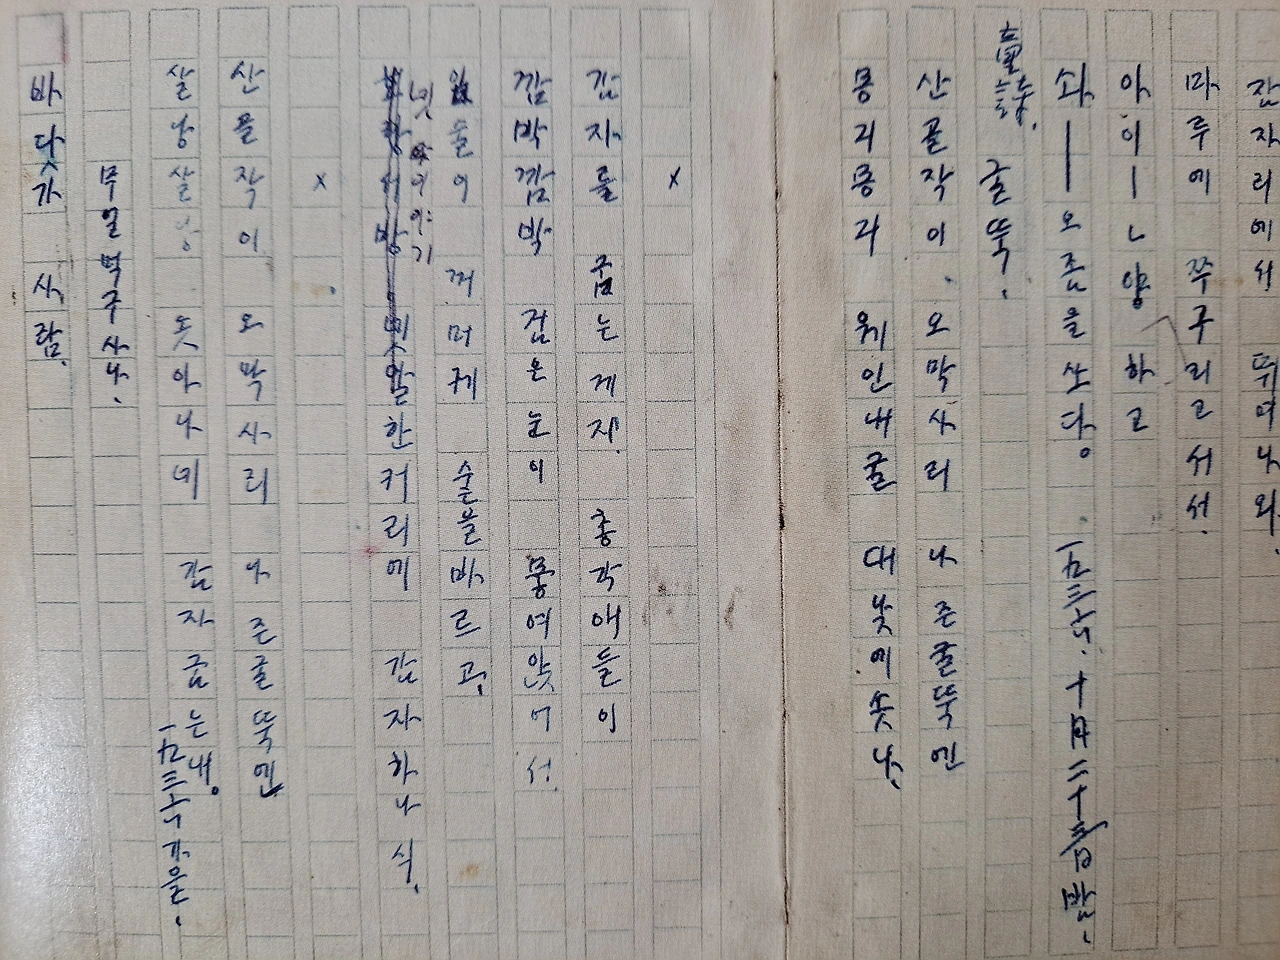 잠자리에서 뛰여나와.
마루에 쭈구리고서서.
아이ㅡㄴ양 하고
솨ㅡㅡ 오줌을 쏘다。 一九三六. 十月 二十三日밤.
童謠. 굴뚝.
산골작이 오막사리 나즌굴뚝엔
몽긔몽긔 웨인내굴 대낮에솟나.
×
감자를 굽는게지. 총각애들이
깜박깜박 검은눈이 뫃여앉어서.
입술이 꺼머케 숱을바르고.
넷이야기 한커리에 감자하나식.
×
산골작이 오막사리 나즌굴뚝엔
살낭살낭 솟아나네 감자굽는내。
一九三六가을.
무얼먹구사나.
바닷가 사람.